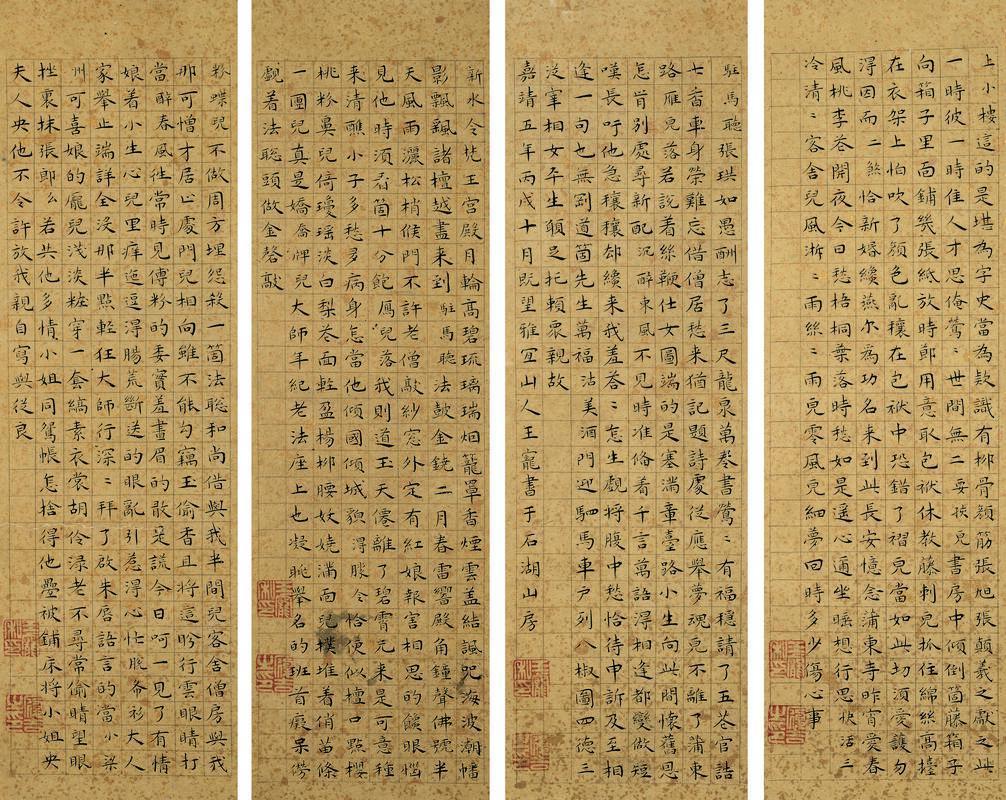 上小樓這的是堪為字史當為欵識有柳骨顏筋張旭張顛羲之獻之此
一時彼一時佳人才思俺鶯〻世間無二耍孩兒書房中傾倒箇藤箱子
向箱子里面鋪幾張紙放時節用意取包袱休教藤刺兒抓住綿絲高擡
在衣架上怕吹了顏色亂穰在包袱中恐錯了褶兒當如此切須愛護勿
淂因而二煞恰新婚纔燕尔為功名来到此長安憶念蒲東寺昨宵愛春
風桃李花開夜今日愁梧桐葉落時愁如是遥心邇坐遙想行思快活三
冷清〻客舍兒風淅〻雨絲〻雨兒零風兒細夢回時多少傷心事
駐馬聽張珙如愚酬志了三尺龍泉萬卷書鶯〻有福穩請了五花官誥
七香車身榮難忘借僧居愁来猶記題詩處從應舉夢魂兒不離了蒲東
路雁兒落若說着絲鞭仕女圖端的是塞滿章臺路小生向此間懷舊恩
怎肯別處尋新配沉醉東風不見時准俻看千言萬語淂相逢都變做短
嘆長吁他急穰穰却纔来我羞荅〻怎生覷將腹中愁恰待申訴及至相
逢一句也無剛道箇先生萬福沽美酒門迎駟馬車户列八椒圖四德三
從宰相女平生願足托賴衆親故
嘉靖五年丙戌十月既望雅宜山人王寵書于石湖山房
新水令梵王宮殿月輪高碧琉璃瑞烟籠罩香煙雲盖結諷咒海波潮幡
影飄颻諸檀越盡来到駐馬聽法鼓金鐃二月春雷響殿角鐘聲佛號半
天風雨灑松梢候門不許老僧敲紗窓外定有紅娘報害相思的饞眼惱
見他時須看箇十分飽鴈兒落我則道玉天僊離了碧霄元来是可意種
来清醮小子多愁多病身怎當他傾國傾城貌淂勝令恰便似檀口點櫻
桃粉鼻兒倚瓊瑶淡白梨花面輕盈楊柳腰妖嬈滿面兒撲堆着俏苗條
一團兒真是嬌喬牌兒大師年紀老法座上也凝眺舉名的班首癡呆僗
覷着法聰頭做金磬敲
粉蝶兒不做周方埋怨殺一箇法聰和尚借與我半間兒客舍僧房與我
那可憎才居止處門兒相向雖不能勾竊玉偷香且將這盻行雲眼睛打
當醉春風往常時見傅粉的委實羞畫眉的敢是謊今日呵一見了有情
娘着小生心兒里痒迤逗淂腸荒斷送的眼亂引惹得心忙脫布衫大人
家舉止端詳全沒那半點輕狂大師行深〻拜了啟朱唇語言的當小梁
州可喜娘的龐兒淺淡粧穿一套縞素衣裳胡伶渌老不尋常偷睛望眼
挫裏抹張郎么若共他多情小姐同鴛帳怎捨得他疊被鋪床將小姐央
夫人央他不令許放我親自寫與從良